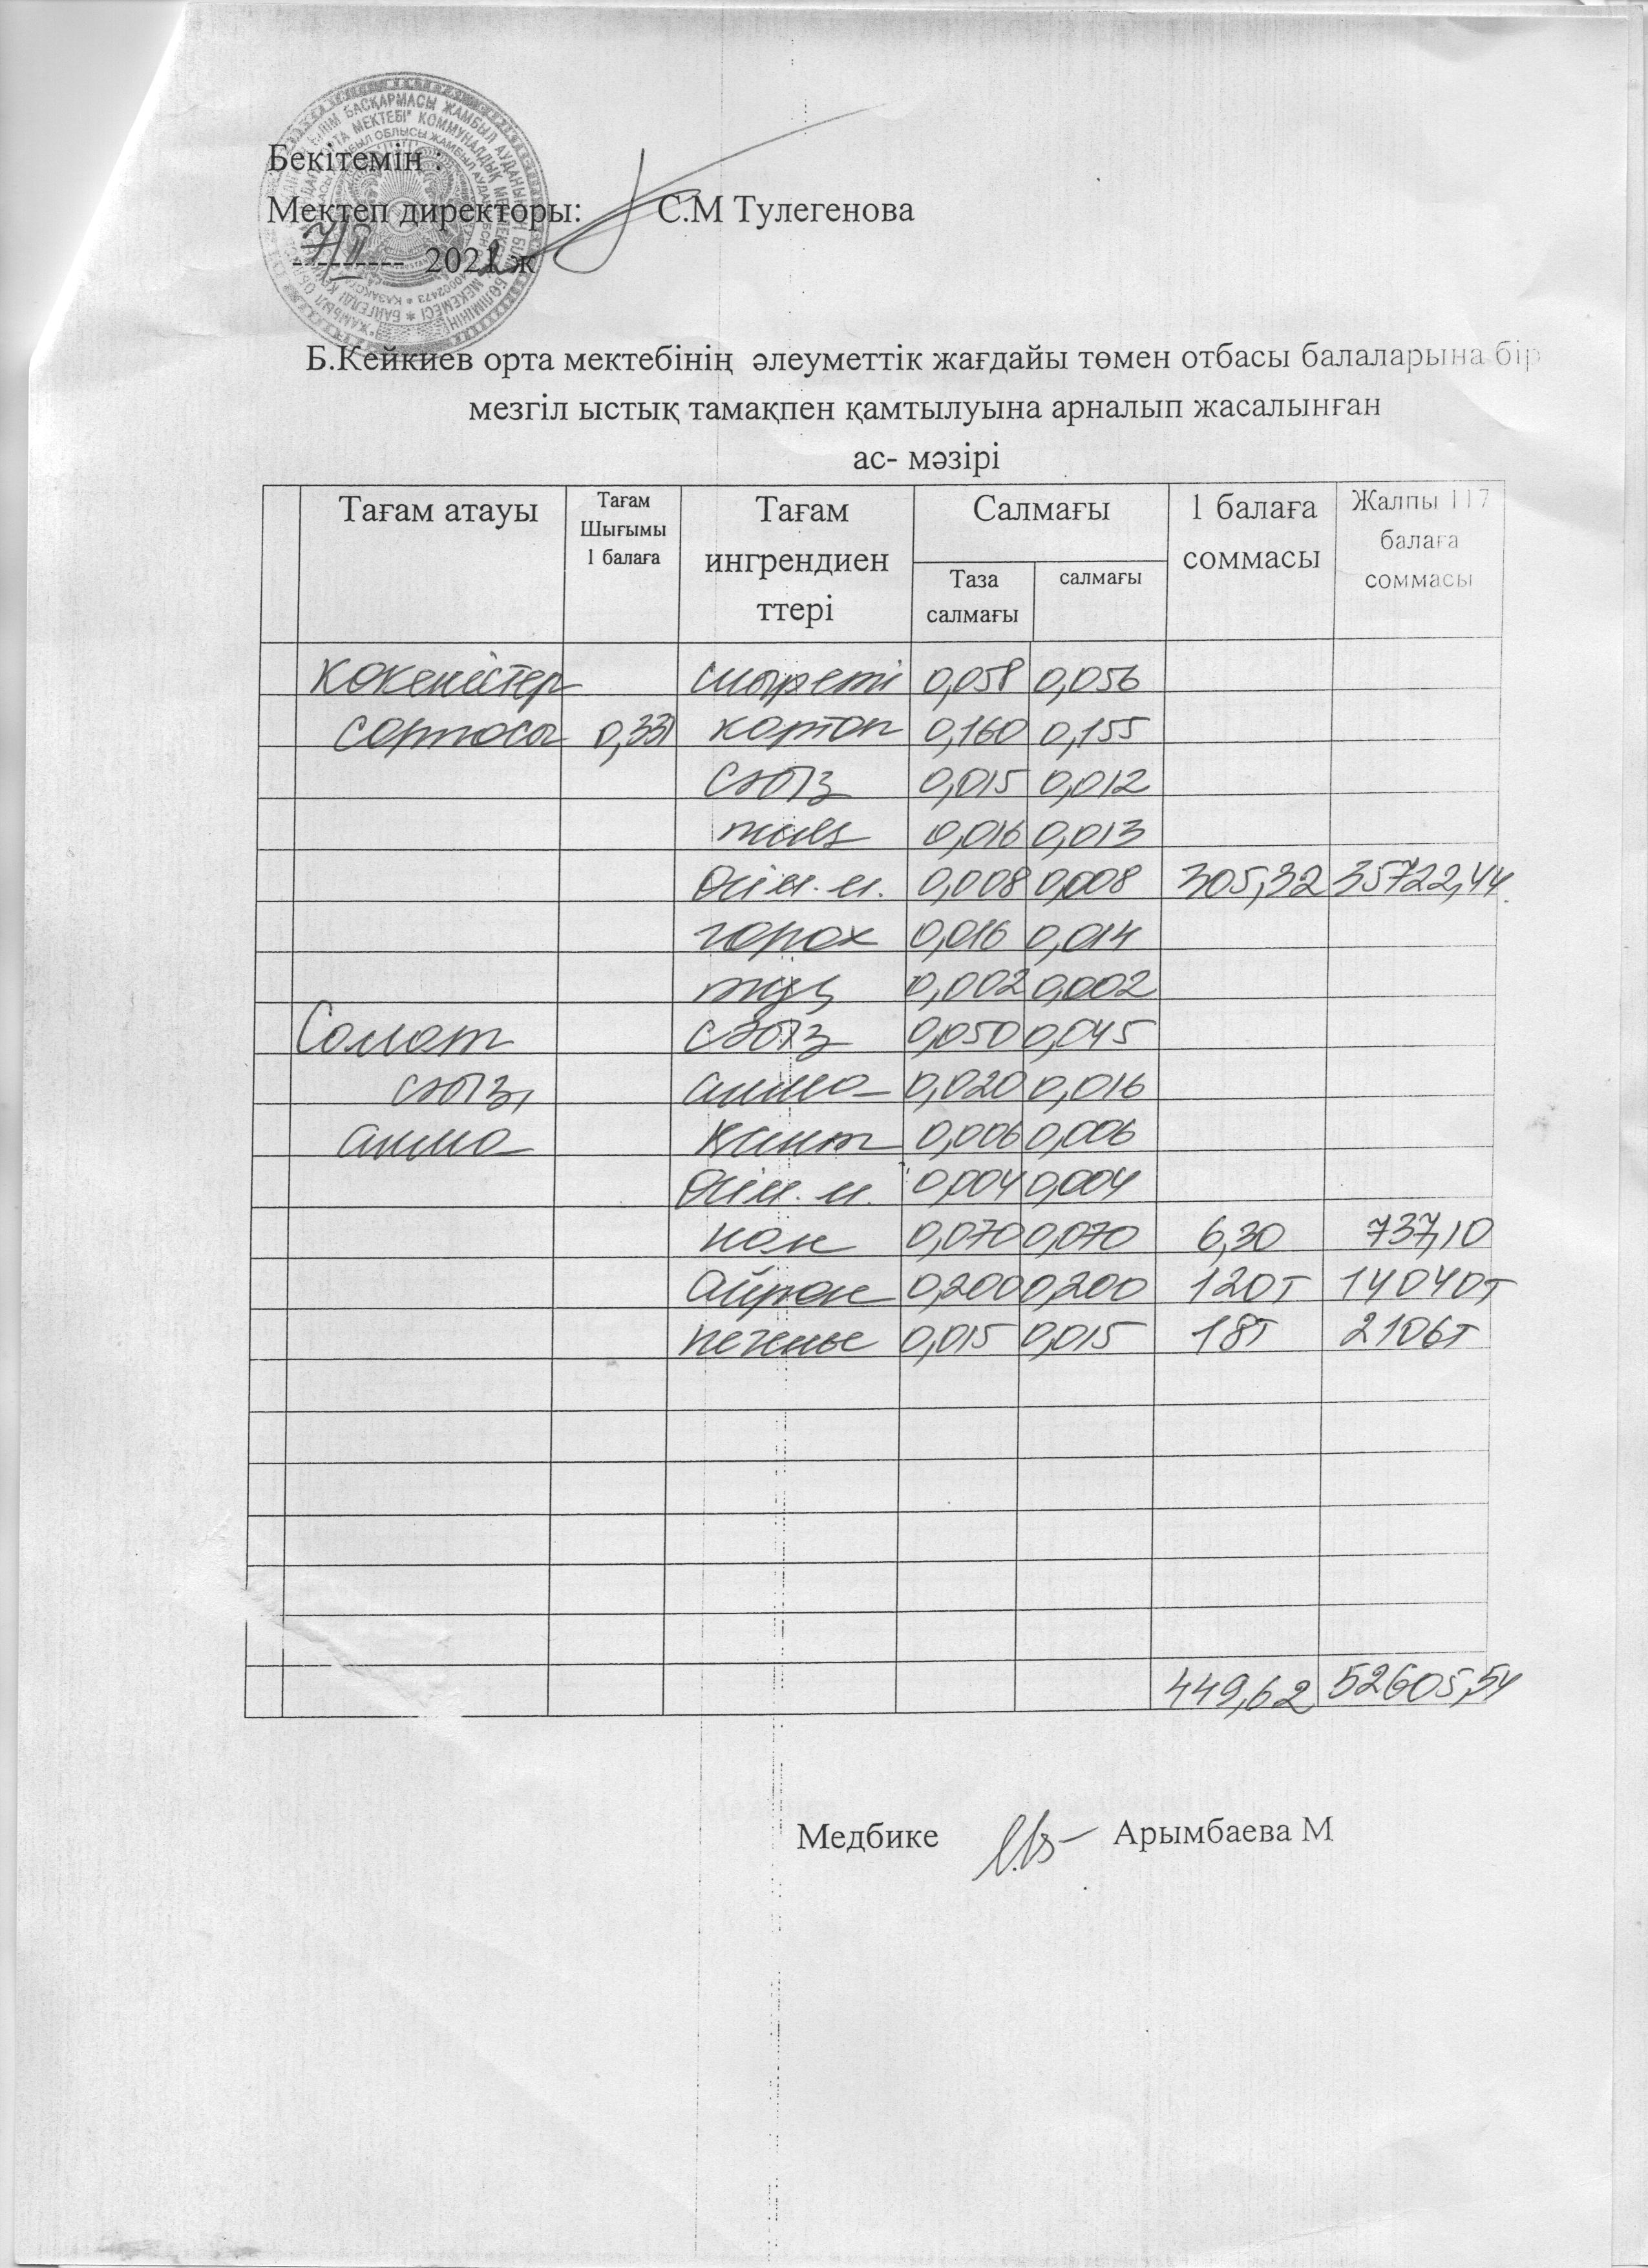 Бекітемін :
Мектеп директоры: С.М Тулегенова
7/ІІ 2022 ж
Б.Кейкиев орта мектебінің әлеуметтік жағдайы төмен отбасы балаларына бір
мезгіл ыстық тамақпен қамтылуына арналып жасалынған
ас- мәзірі
Тағам атауы Тағам Шығымы 1 балаға Тағам ингрендиен ттері Салмағы 1 балаға соммасы Жалпы 117 балаға соммасы
Таза салмағы салмағы
Көкөністер сиыр еті 0,058 0,056
сорпасы 0,331 картоп 0,160 0,155
сәбіз 0,015 0,012
пияз 0,016 0,013
Өсім. м. 0,008 0,008 305,32 35722,44
горох 0,016 0,014
тұз 0,002 0,002
Салат сәбіз 0,050 0,045
сәбіз, алма 0,020 0,016
алма Қант 0,006 0,006
Өсім. м. 0,004 0,004
нан 0,070 0,070 6,30 737,10
айран 0,200 0,200 120т 14040т
печенье 0,015 0,015 18т 2106т
449,62 52605,54
Медбике Арымбаева М